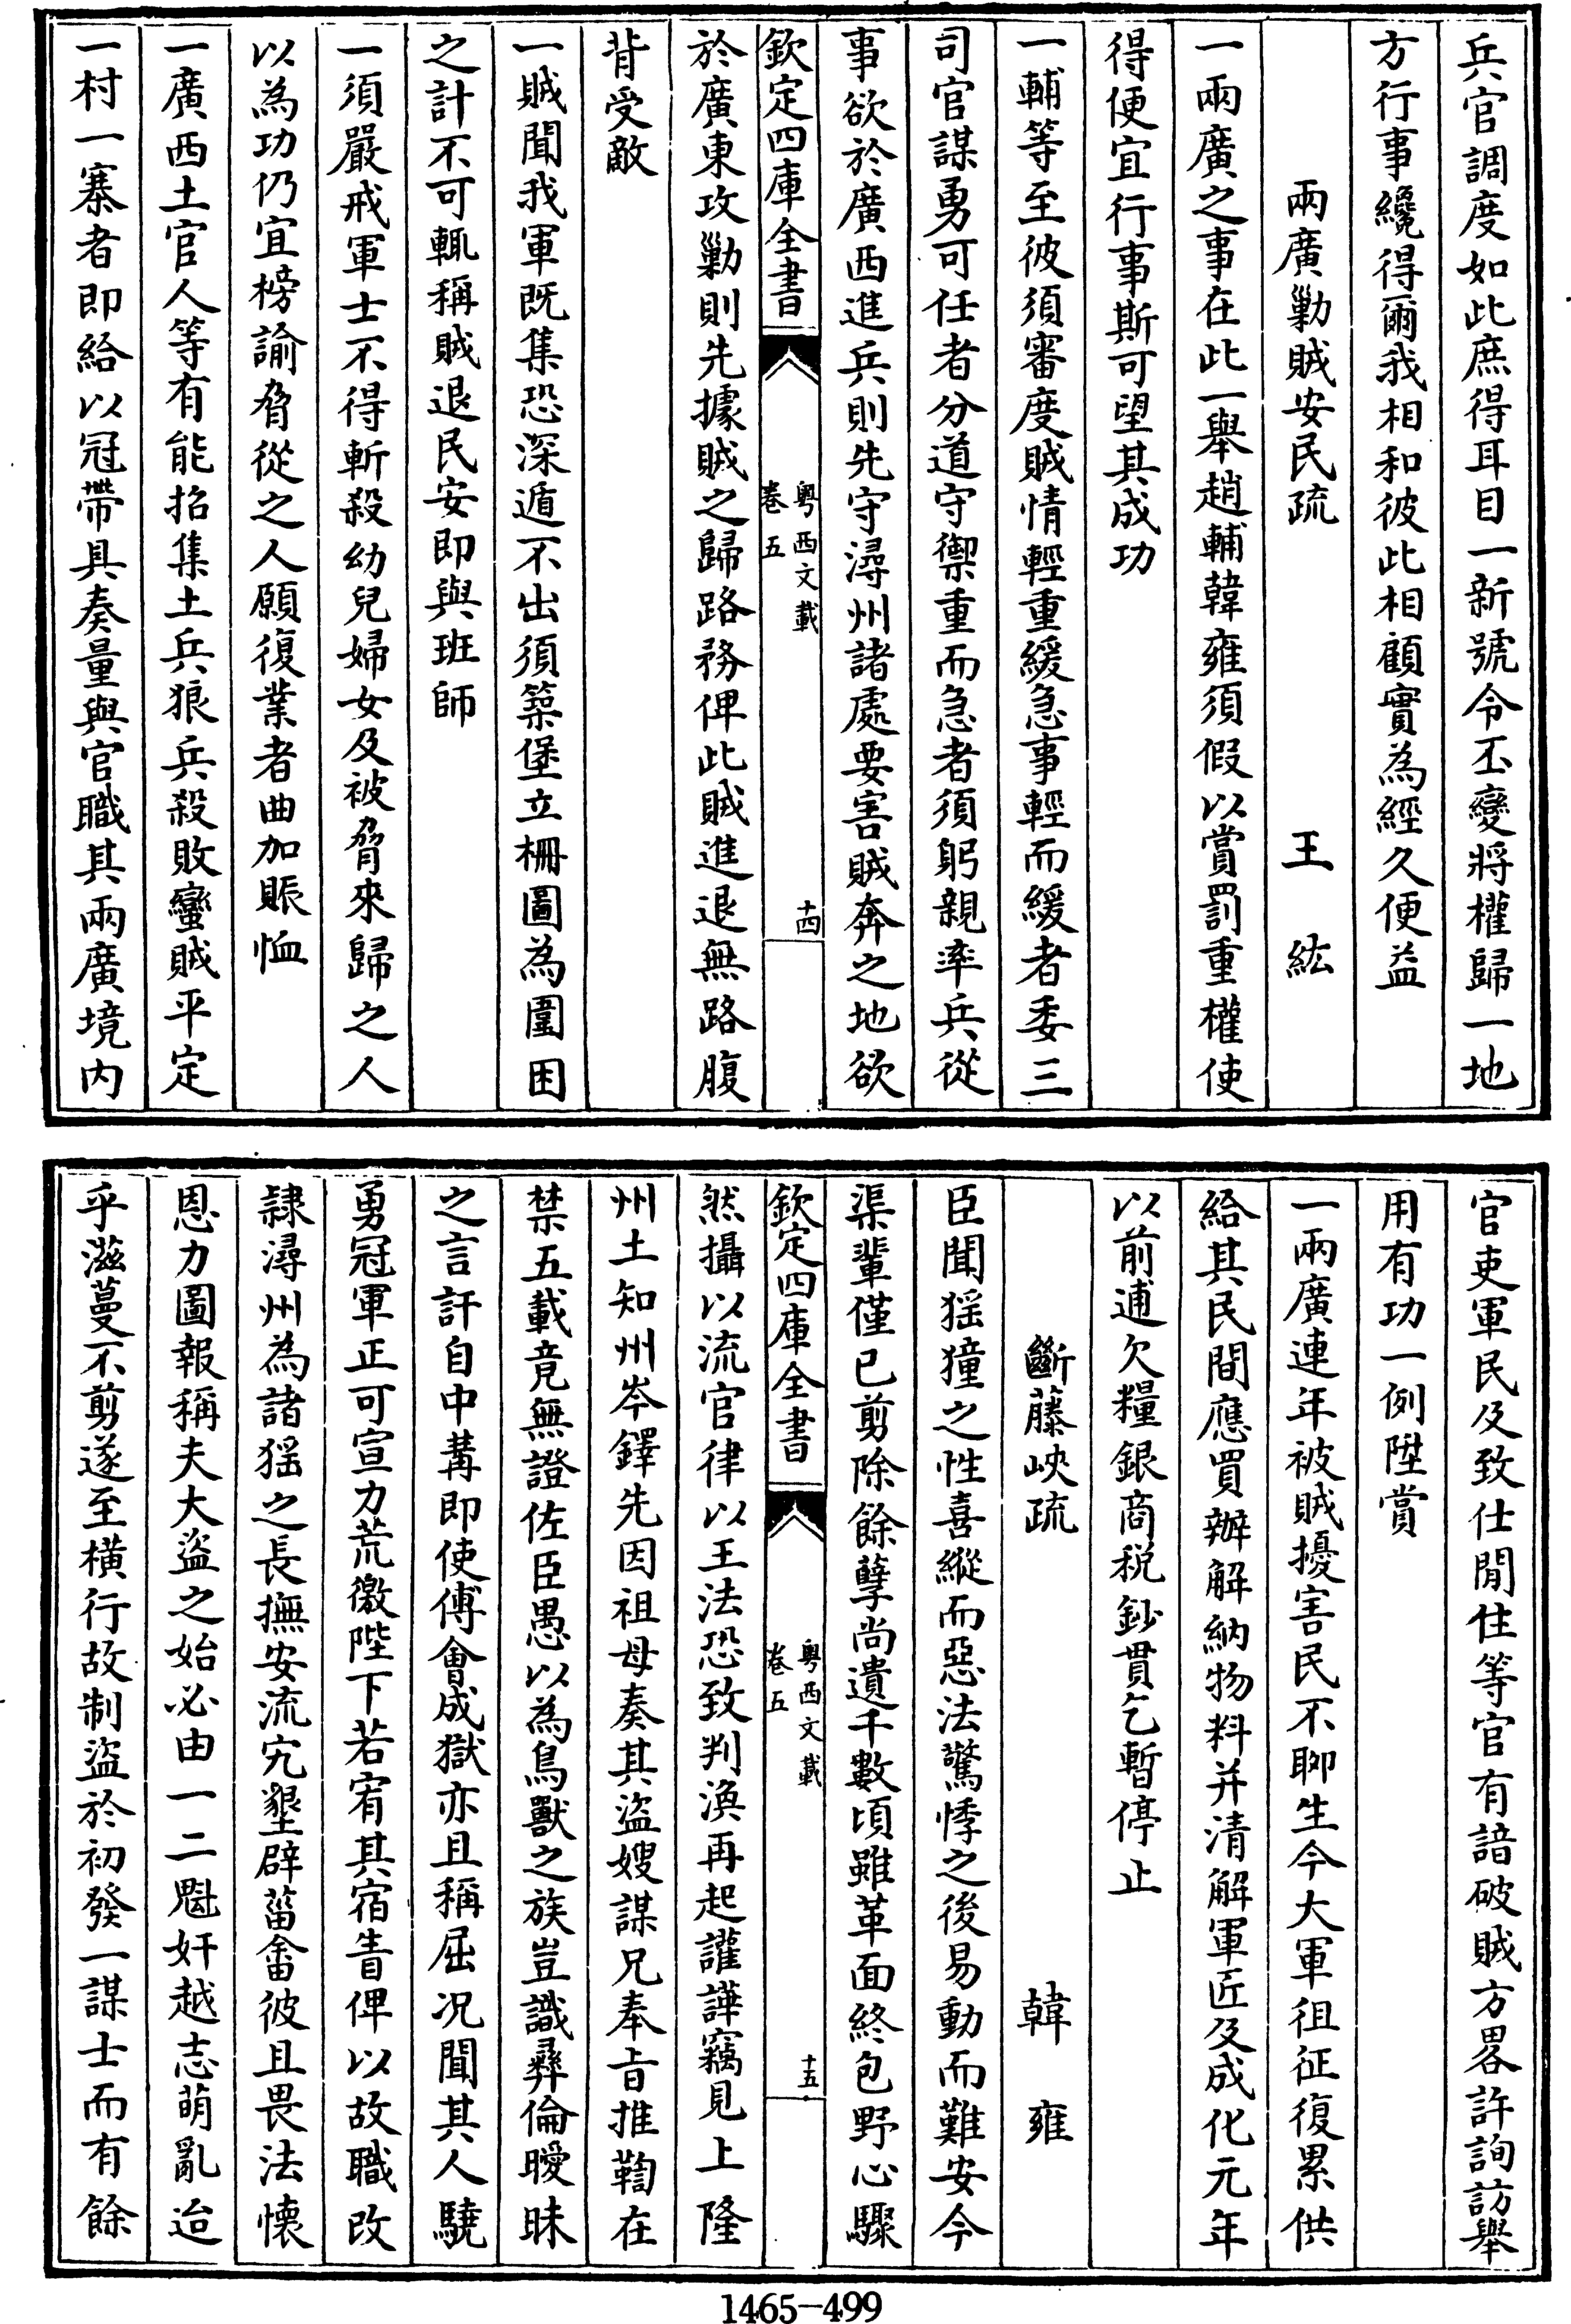 兵官調度如此庶得耳目一新號令丕變將權歸一地
方行事纔得爾我相和彼此相顧實為經久便益
兩廣勦賊安民疏　王紘
一兩廣之事在此一舉趙輔韓雍須假以賞罰重權使
得便宜行事斯可望其成功
一輔等至彼須審度賊情輕重緩急事輕而緩者委三
司官謀勇可任者分道守禦重而急者須躬親率兵從
事欲於廣西進兵則先守潯州諸處要害賊奔之地欲
欽定四庫全書　粤西文載卷五　十四
於廣東攻勦則先據賊之歸路務俾此賊進退無路腹
背受敵
一賊聞我軍既集恐深遁不出須築堡立柵圖為圍困
之計不可輒稱賊退民安即與班師
一須嚴戒軍士不得斬殺幼兒婦女及被脅來歸之人
以為功仍宜榜諭脅從之人願復業者曲加賑恤
一廣西土官人等有能招集土兵狼兵殺敗蠻賊平定
一村一寨者即給以冠帶具奏量與官職其兩廣境内
官吏軍民及致仕閒住等官有諳破賊方畧許詢訪舉
用有功一例陞賞
一兩廣連年被賊擾害民不聊生今大軍徂征復累供
給其民間應買辦解納物料并清解軍匠及成化元年
以前逋欠糧銀商税鈔貫乞暫停止
斷藤峽疏　韓雍
臣聞猺獞之性喜縱而惡法驚悸之後易動而難安今
渠輩僅已剪除餘孽尚遺千數頃雖革面終包野心驟
欽定四庫全書　粤西文載卷五　十五
然攝以流官律以王法恐致判渙再起讙譁竊見上隆
州土知州岑鐸先因祖母奏其盜嫂謀兄奉旨推鞫在
禁五載竟無證佐臣愚以為鳥獸之族豈識彝倫曖昧
之言訐自中冓即使傅會成獄亦且稱屈况聞其人驍
勇冠軍正可宣力荒徼陛下若宥其宿眚俾以故職改
隷潯州為諸猺之長撫安流宂墾辟菑畬彼且畏法懷
恩力圖報稱夫大盜之始必由一二魁奸越志萌亂迨
乎滋蔓不剪遂至橫行故制盜於初發一謀士而有餘
1465-499